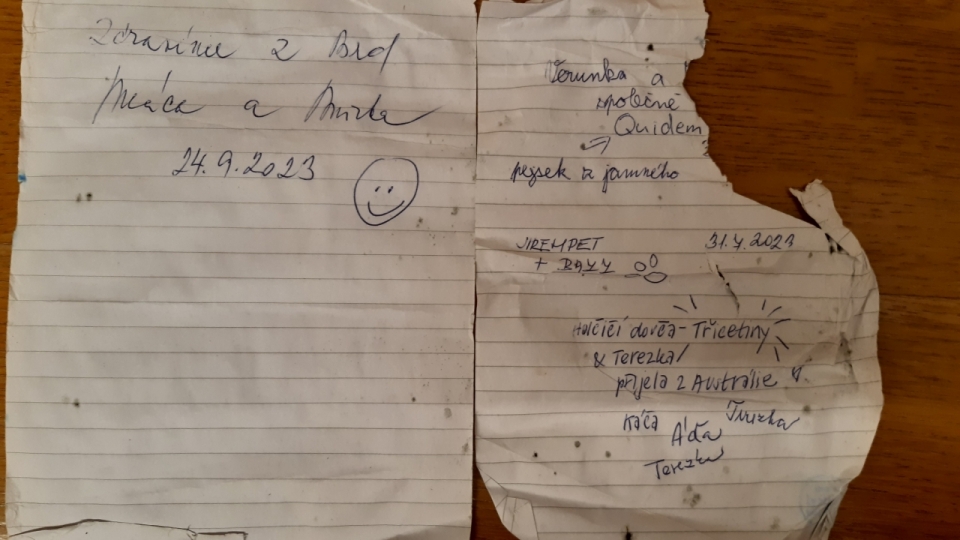 Zdravíme z Brd
a
24.9.2023
Verunka a
společně
Quidem
pejsek z jamného
JIREMPET 31.7.2023
+
Holčičí dovča - Třicetiny
& Terezka
přijela z Austrálie
Káča
Áďa
Terezka